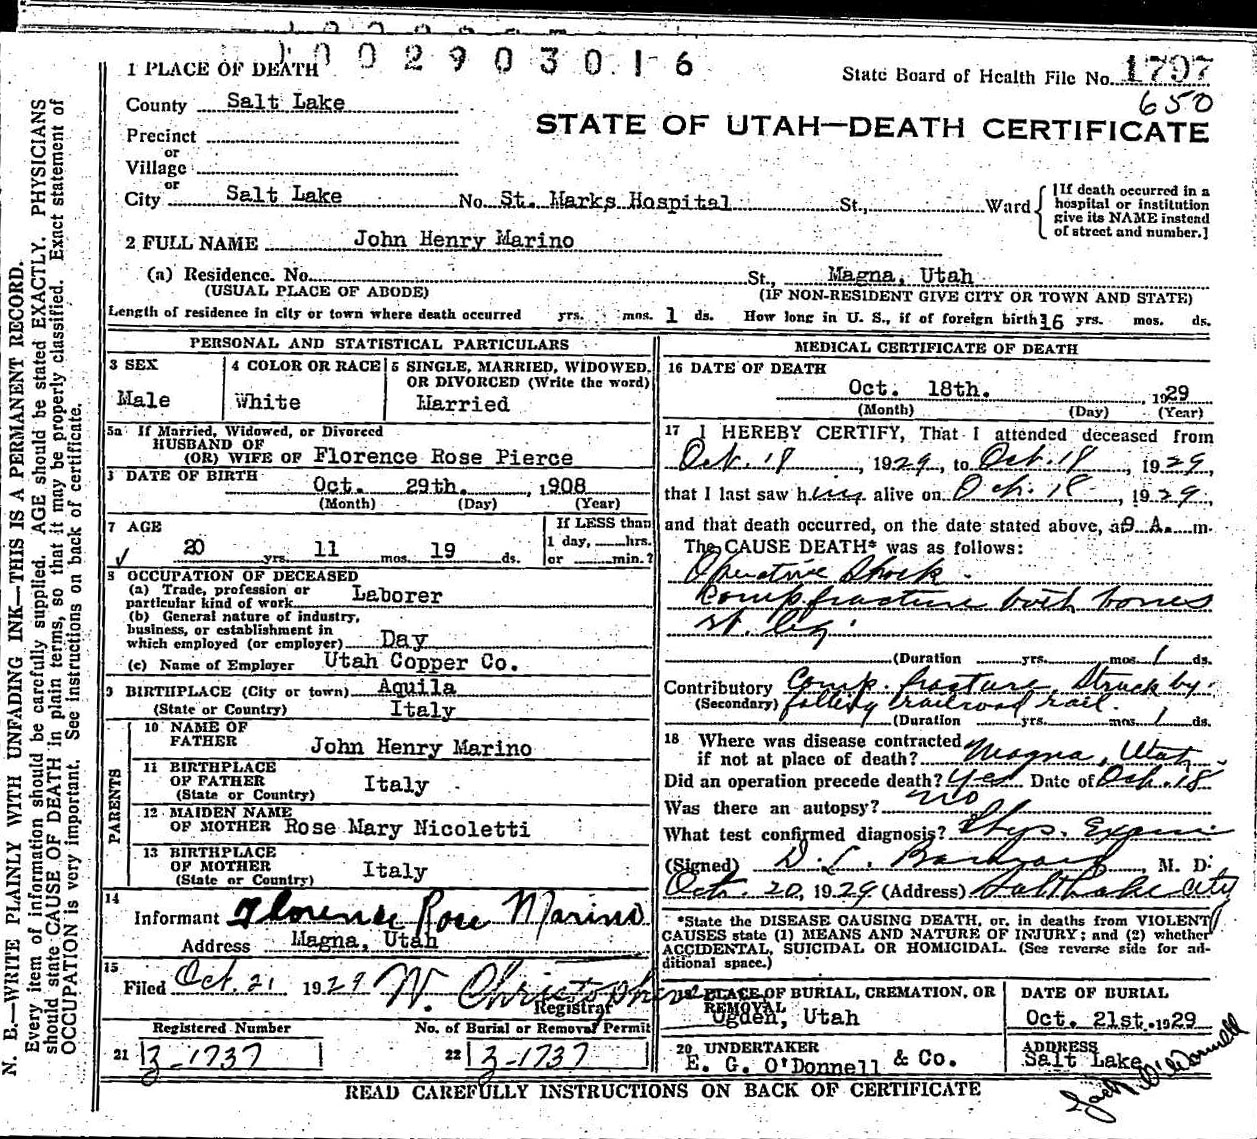 1002903016
1 PLACE OF DEATH
State Board of Health File No. 1797
650
County Salt Lake
STATE OF UTAH—DEATH CERTIFICATE
Precinct
or
Village
or
City Salt Lake No. St. Marks Hospital St., Ward
[If death occurred in a
hospital or institution
give its NAME instead
of street and number.]
2 FULL NAME John Henry Marino
(a) Residence. No. St., Magna, Utah
(USUAL PLACE OF ABODE) (IF NON-RESIDENT GIVE CITY OR TOWN AND STATE)
Length of residence in city or town where death occurred yrs. mos. 1 ds. How long in U. S., if of foreign birth 16 yrs. mos. ds.
PERSONAL AND STATISTICAL PARTICULARS
3 SEX
Male
4 COLOR OR RACE
White
5 SINGLE, MARRIED, WIDOWED,
OR DIVORCED (Write the word)
Married
5a If Married, Widowed, or Divorced
HUSBAND OF
(OR) WIFE OF Florence Rose Pierce
DATE OF BIRTH
Oct. 29th. , 1908
(Month) (Day) (Year)
7 AGE
20 yrs. 11 mos. 19 ds.
If LESS than
1 day, hrs.
or min.?
8 OCCUPATION OF DECEASED
(a) Trade, profession or
particular kind of work Laborer
(b) General nature of industry,
business, or establishment in
which employed (or employer) Day
(c) Name of Employer Utah Copper Co.
9 BIRTHPLACE (City or town) Aquila
(State or Country) Italy
PARENTS
10 NAME OF
FATHER John Henry Marino
11 BIRTHPLACE
OF FATHER Italy
(State or Country)
12 MAIDEN NAME
OF MOTHER Rose Mary Nicoletti
13 BIRTHPLACE
OF MOTHER Italy
(State or Country)
14
Informant Florence Rose Marino
Address Magna, Utah
15
Filed Oct. 21 1929 W. Christopherson
Registrar
Registered Number No. of Burial or Removal Permit
21 3-1737 22 3-1737
MEDICAL CERTIFICATE OF DEATH
16 DATE OF DEATH
Oct. 18th. , 1929
(Month) (Day) (Year)
17 I HEREBY CERTIFY, That I attended deceased from
Oct. 18, 1929, to Oct. 18, 1929,
that I last saw him alive on Oct. 18, 1929,
and that death occurred, on the date stated above, at 9 A. m.
The CAUSE DEATH* was as follows:
Operative Shock.
Comp fracture both bones
rt. leg.
(Duration yrs. mos. 1 ds.
Contributory Comp. fracture, Struck by
(Secondary) falling railroad rail.
(Duration yrs. mos. 1 ds.
18 Where was disease contracted
if not at place of death? Magna, Utah
Did an operation precede death? Yes Date of Oct. 18
Was there an autopsy? no
What test confirmed diagnosis? Phys. Exam
(Signed) D. L. M. D.
Oct. 20, 1929 (Address) Salt Lake City
*State the DISEASE CAUSING DEATH, or, in deaths from VIOLENT
CAUSES state (1) MEANS AND NATURE OF INJURY; and (2) whether
ACCIDENTAL, SUICIDAL OR HOMICIDAL. (See reverse side for ad-
ditional space.)
19 PLACE OF BURIAL, CREMATION, OR
REMOVAL
Ogden, Utah
DATE OF BURIAL
Oct. 21st. 1929
20 UNDERTAKER
E. G. O'Donnell & Co.
ADDRESS
Salt Lake
O'Donnell
READ CAREFULLY INSTRUCTIONS ON BACK OF CERTIFICATE
N. B.—WRITE PLAINLY WITH UNFADING INK—THIS IS A PERMANENT RECORD.
Every item of information should be carefully supplied. AGE should be stated EXACTLY. PHYSICIANS
should state CAUSE OF DEATH in plain terms, so that it may be properly classified. Exact statement of
OCCUPATION is very important. See instructions on back of certificate.